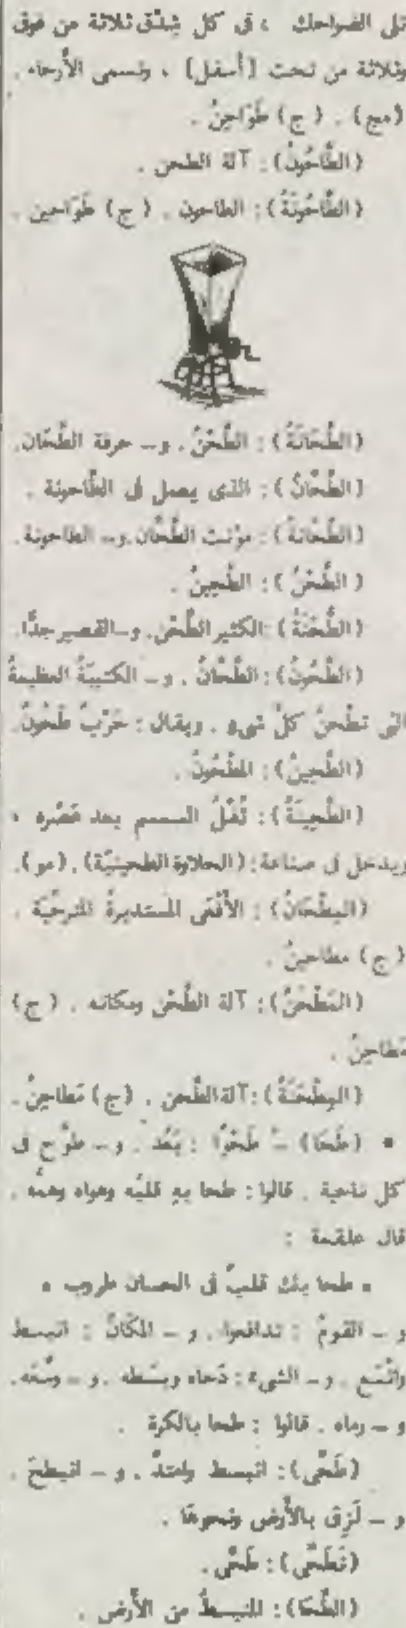 تلى الضواحك ، فى كل شِدْق ثلاثة من فوق
وثلاثة من تحت [أسفل] ، وتسمى الأَرحاء .
(مج) . (ج) طَوَاحِنُ .
(الطَّاحُونُ) : آلة الطحن .
(الطَّاحُونَةُ) : الطاحون . (ج) طَوَاحين .
(الطِّحَانَةُ) : الطَّحْنُ . و ــ حرفة الطَّحَّان .
(الطَّحَّانُ) : الذى يعمل فى الطَّاحونة .
(الطَّحَّانةُ) : مؤنث الطَّحَّان . و ــ الطاحونة .
(الطِّحْنُ) : الطَّحِينُ .
(الطُّحَنَةُ) : الكثير الطَّحْن . و ــ القصير جدًّا .
(الطَّحُونُ) : الطَّحَّانُ . و ــ الكتيبَةُ العظيمةُ
التى تطْحنُ كلَّ شىءٍ . ويقال : حَرْبٌ طَحُونٌ .
(الطَّحِينُ) : المَطْحُونُ .
(الطَّحِينَةُ) : ثُفْلُ السمسم بعد عَصْره ،
ويدخل فى صناعة : (الحلاوة الطحينيّة) . (مو) .
(المِطْحَانُ) : الأَفْعَى المستديرةُ المترحِّيَة .
(ج) مطاحينُ .
(المَطْحَنُ) : آلة الطَّحْن ومكانه . (ج)
مَطاحِنُ .
(المِطْحَنَةُ) : آلة الطَّحن . (ج) مَطاحِنُ .
• (طَحَا) ــُ طَحْوًا : بَعُد . و ــ طوَّح فى
كل ناحية . قالوا : طحا بهِ قلبُه وهواه وهمُّه .
قال علقمة :
• طحا بك قلبٌ فى الحسان طروب •
و ــ القومُ : تدافعوا . و ــ المكَانُ : انبسط
واتَّسَع . و ــ الشىءَ : دَحاه وبسَطه . و ــ وسَّعَه .
و ــ رماه . قالوا : طحا بالكرة .
(طَحَّى) : انبسط وامتدَّ . و ــ انبطحَ .
و ــ لَزِق بالأَرض ونحوها .
(تَطَحَّى) : طَحَّى .
(الطَّحَا) : المنبسطُ من الأَرض .